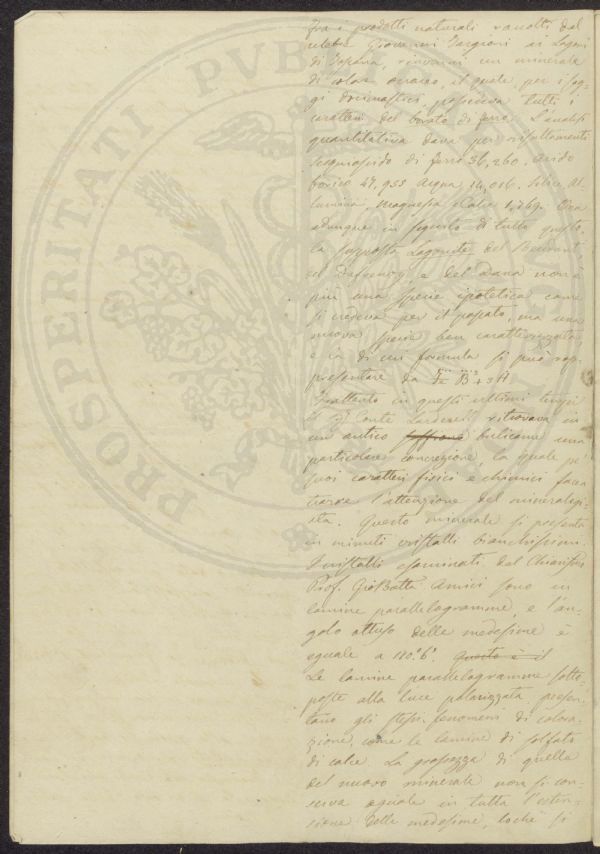 PROSPERITATI PVB
Fra i prodotti naturali raccolti dal
celebre Giovanni Targioni ai Lagoni
di Toscana, rinvenni un minerale
di color ocraceo, il quale, per i sag-
gi docimastici, possedeva tutti i
caratteri del borato di ferro. L'analisi
quantitativa dava per risultamenti
sesquiossido di ferro 36,260. Acido
borico 47,955 Acqua 14,016. Silice, Al-
lumina, Magnesia e Calce 1,769. Ora
adunque in seguito di tutto questo,
la supposta Lagonite del Beudant,
del Dufrenoy e del Dana non è
più una specie ipotetica come
si credeva per il passato, ma una
nuova specie ben caratterizzata
e la di cui formula si può rap-
presentare da
Frattanto in questi ultimi tempi
il Sig. Conte Larderel ritrovava in
un antico soffione bulicame una
particolare concrezione, la quale pe'
suoi caratteri fisici e chimici facea
trarre l'attenzione del mineralogi-
sta. Questo minerale si presenta
in minuti cristalli bianchissimi.
I cristalli esaminati dal Chiariss.
Prof. Gio Batta Amici sono in
lamine parallelogramme, e l'an-
golo ottuso delle medesime è
eguale a Questo è il
Le lamine parallelogramme sotto-
poste alla luce polarizzata presen-
tano gli stessi fenomeni di colora-
zione, come le lamine di solfato
di calce. La grossezza di quelle
del nuovo minerale non si con-
serva eguale in tutta l'esten-
sione delle medesime, loché si